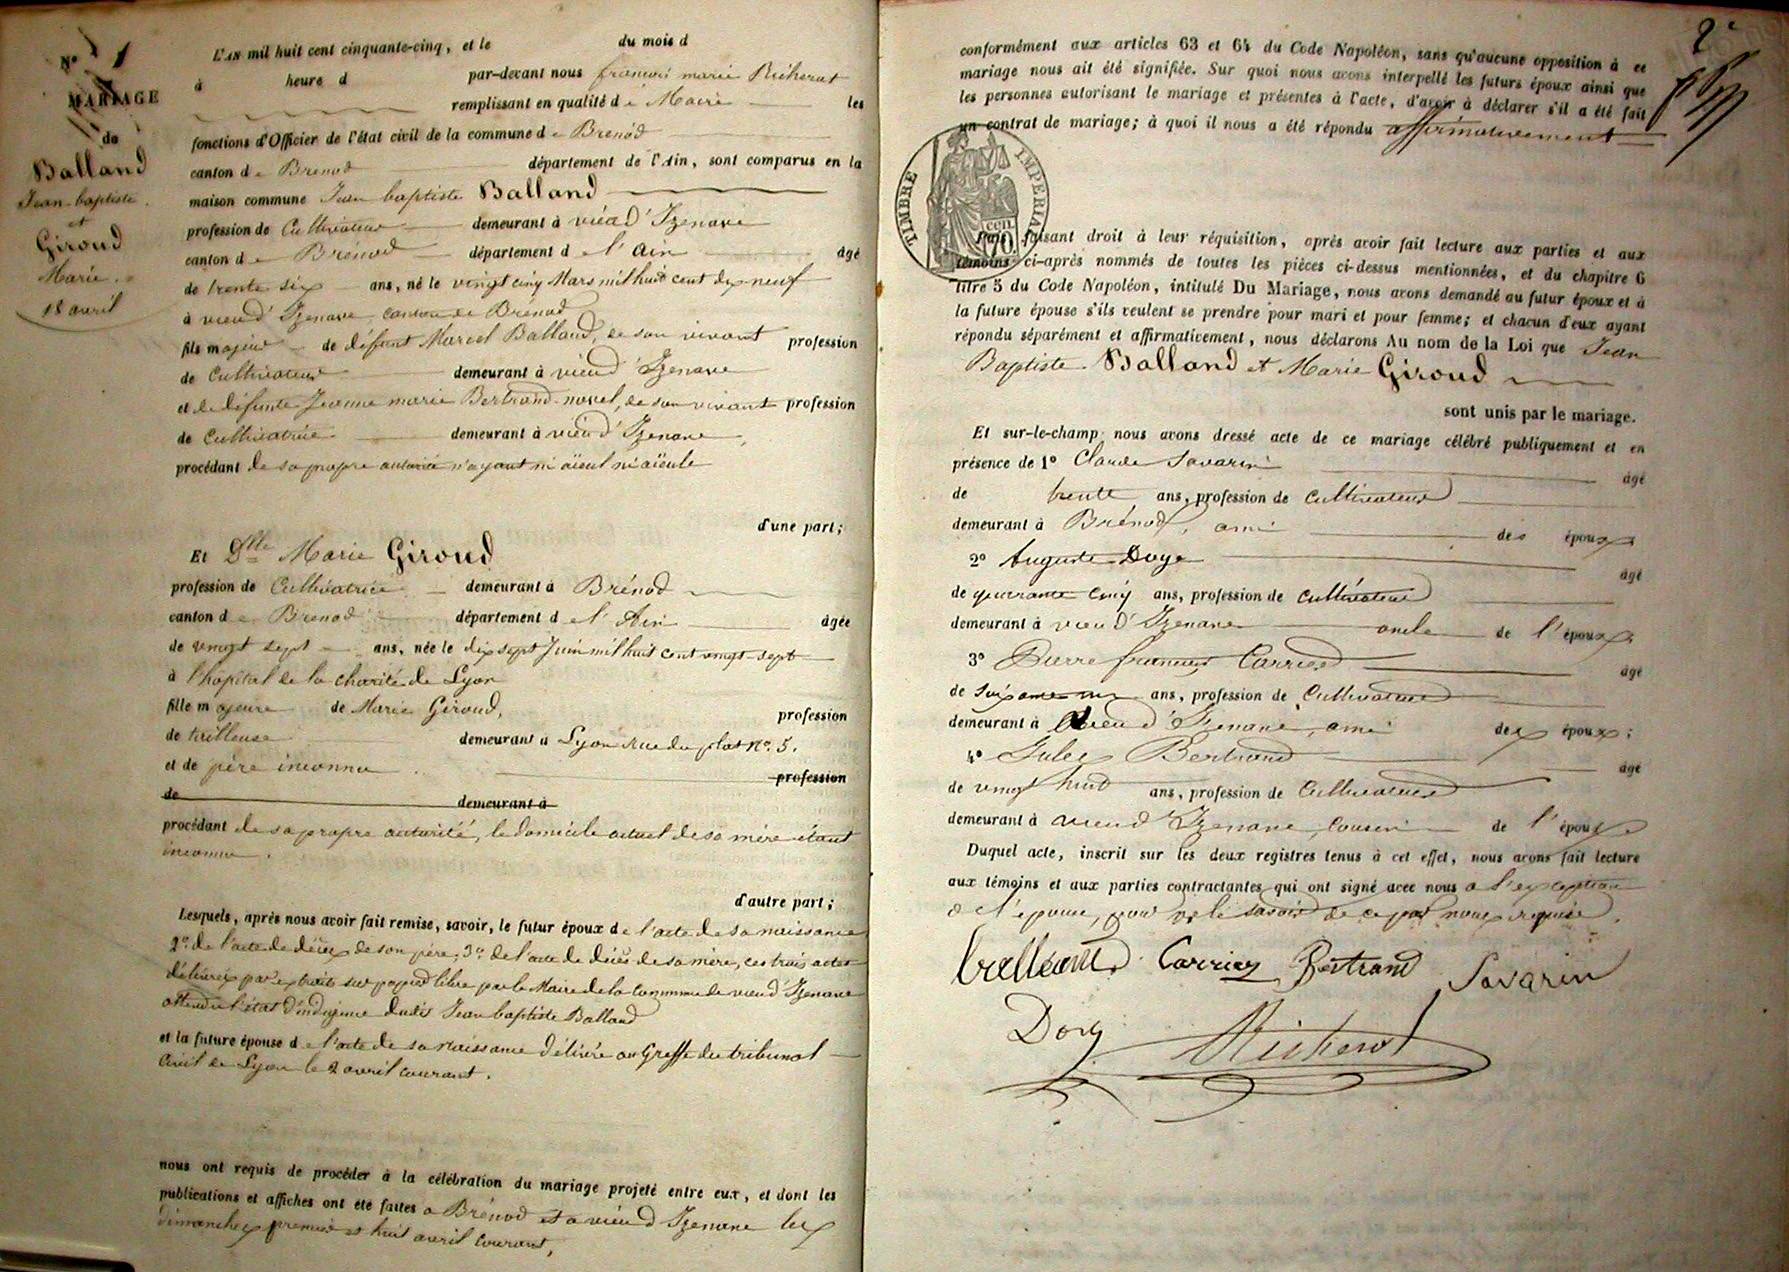 N° 1
MARIAGE
de
Balland
Jean-baptiste
et
Giroud
Marie
18 avril
L'AN mil huit cent cinquante-cinq, et le du mois d
à heure d par-devant nous françois marie Richerot
remplissant en qualité de Maire les
fonctions d'Officier de l'état civil de la commune de Brénod
canton de Brenod département de l'Ain, sont comparus en la
maison commune Jean baptiste Balland
profession de Cultivateur demeurant à vieu d'Izenave
canton de Brénod département de l'Ain âgé
de trente six ans, né le vingt cinq Mars mil huit cent dix neuf
à vieu d'Izenave canton de Brenod
fils majeur de défunt Marcel Balland, de son vivant profession
de Cultivateur demeurant à vieu d'Izenave
et de défunte Jeanne marie Bertrand-novel, de son vivant profession
de Cultivatrice demeurant à vieu d'Izenave,
procédant de sa propre autorité n'ayant ni aïeul ni aïeule
d'une part;
Et Dlle Marie Giroud
profession de Cultivatrice demeurant à Brénod
canton de Brenod département de l'Ain âgée
de vingt sept ans, née le dix sept Juin mil huit cent vingt-sept
à l'hopital de la charité de Lyon
fille majeure de Marie Giroud, profession
de demeurant à Lyon rue du plat n° 5.
et de père inconnu profession
de demeurant à
procédant de sa propre autorité, le domicile actuel de sa mère étant
inconnu.
d'autre part;
Lesquels, après nous avoir fait remise, savoir, le futur époux de l'acte de sa naissance
2° de l'acte de décès de son père, 3° de l'acte de décès de sa mère, ces trois actes
délivrés par extraits sur papier libre par le Maire de la Commune de vieu d'Izenave
attendu l'état d'indigence dudit Jean baptiste Balland
et la future épouse de l'acte de sa naissance délivré au Greffe du tribunal
Civil de Lyon le 2 avril courant.
nous ont requis de procéder à la célébration du mariage projeté entre eux, et dont les
publications et affiches ont été faites à Brénod et à vieu d'Izenave les
dimanches premier et huit avril courant,
2e
conformément aux articles 63 et 64 du Code Napoléon, sans qu'aucune opposition à ce
mariage nous ait été signifiée. Sur quoi nous avons interpellé les futurs époux ainsi que
les personnes autorisant le mariage et présentes à l'acte, d'avoir à déclarer s'il a été fait
un contrat de mariage; à quoi il nous a été répondu affirmativement
TIMBRE IMPERIAL
70 cen
Puis, faisant droit à leur réquisition, après avoir fait lecture aux parties et aux
témoins ci-après nommés de toutes les pièces ci-dessus mentionnées, et du chapitre 6
titre 5 du Code Napoléon, intitulé Du Mariage, nous avons demandé au futur époux et à
la future épouse s'ils veulent se prendre pour mari et pour femme; et chacun d'eux ayant
répondu séparément et affirmativement, nous déclarons Au nom de la Loi que Jean
Baptiste Balland et Marie Giroud
sont unis par le mariage.
Et sur-le-champ nous avons dressé acte de ce mariage célébré publiquement et en
présence de 1° Claude Savarin âgé
de trente ans, profession de Cultivateur
demeurant à Brénod, ami des époux
2° Auguste Doye âgé
de quarante cinq ans, profession de cultivateur
demeurant à vieu d'Izenave oncle de l'époux;
3° Pierre françois Carrier âgé
de ans, profession de Cultivateur
demeurant à vieu d'Izenave, ami des époux;
4° Jules Bertrand âgé
de vingt huit ans, profession de Cultivateur
demeurant à vieu d'Izenave, cousin de l'époux
Duquel acte, inscrit sur les deux registres tenus à cet effet, nous avons fait lecture
aux témoins et aux parties contractantes qui ont signé avec nous à l'exception
de l'épouse, pour ne le savoir de ce par nous requise.
Carrier Bertrand Savarin
Doy Richerot